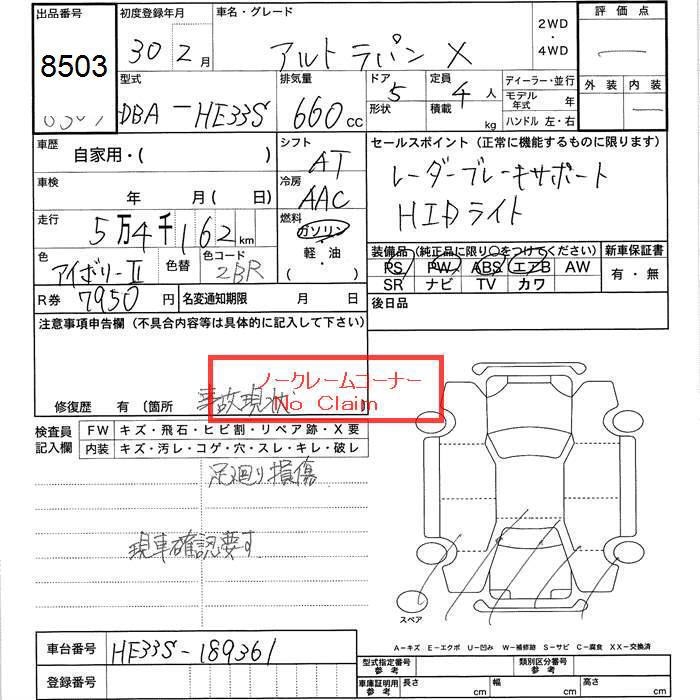 出品番号 初度登録年月 車名・グレード 2WD・4WD 評価点
8503 30 2月 アルトラパン X
外装 内装
型式 排気量 ドア 定員 ディーラー・並行
DBA-HE33S 660cc 5 4人 モデル年式 年
形状 積載 kg ハンドル 左・右
車歴 自家用・( ) シフト AT セールスポイント (正常に機能するものに限ります)
車検 年 月(日) 冷房 AAC レーダーブレーキサポート
HIDライト
走行 5万4千162km 燃料 ガソリン 軽・油 ( ・ )
色 アイボリーII 色替 色コード ZBR
装備品 (純正品に限り○をつけてください) 新車保証書
PS PW ABS エアB AW 有・無
SR ナビ TV カワ
R券 7950円 名変通知期限 月 日 後日品
注意事項申告欄 (不具合内容等は具体的に記入して下さい)
ノークレームコーナー
No Claim
修復歴 有 (箇所 事故現状
検査員記入欄 FW キズ・飛石・ヒビ割・リペア跡・X要
内装 キズ・汚レ・コゲ・穴・スレ・キレ・破レ
足廻り損傷
現車確認要す
スペア
A-キズ E-エクボ U-凹み W-補修跡 S-サビ C-腐食 XX-交換済
車台番号 HE33S-189361
型式指定番号 参考 類別区分番号 参考
登録番号
車庫証明用 参考 長さ cm 幅 cm 高さ cm